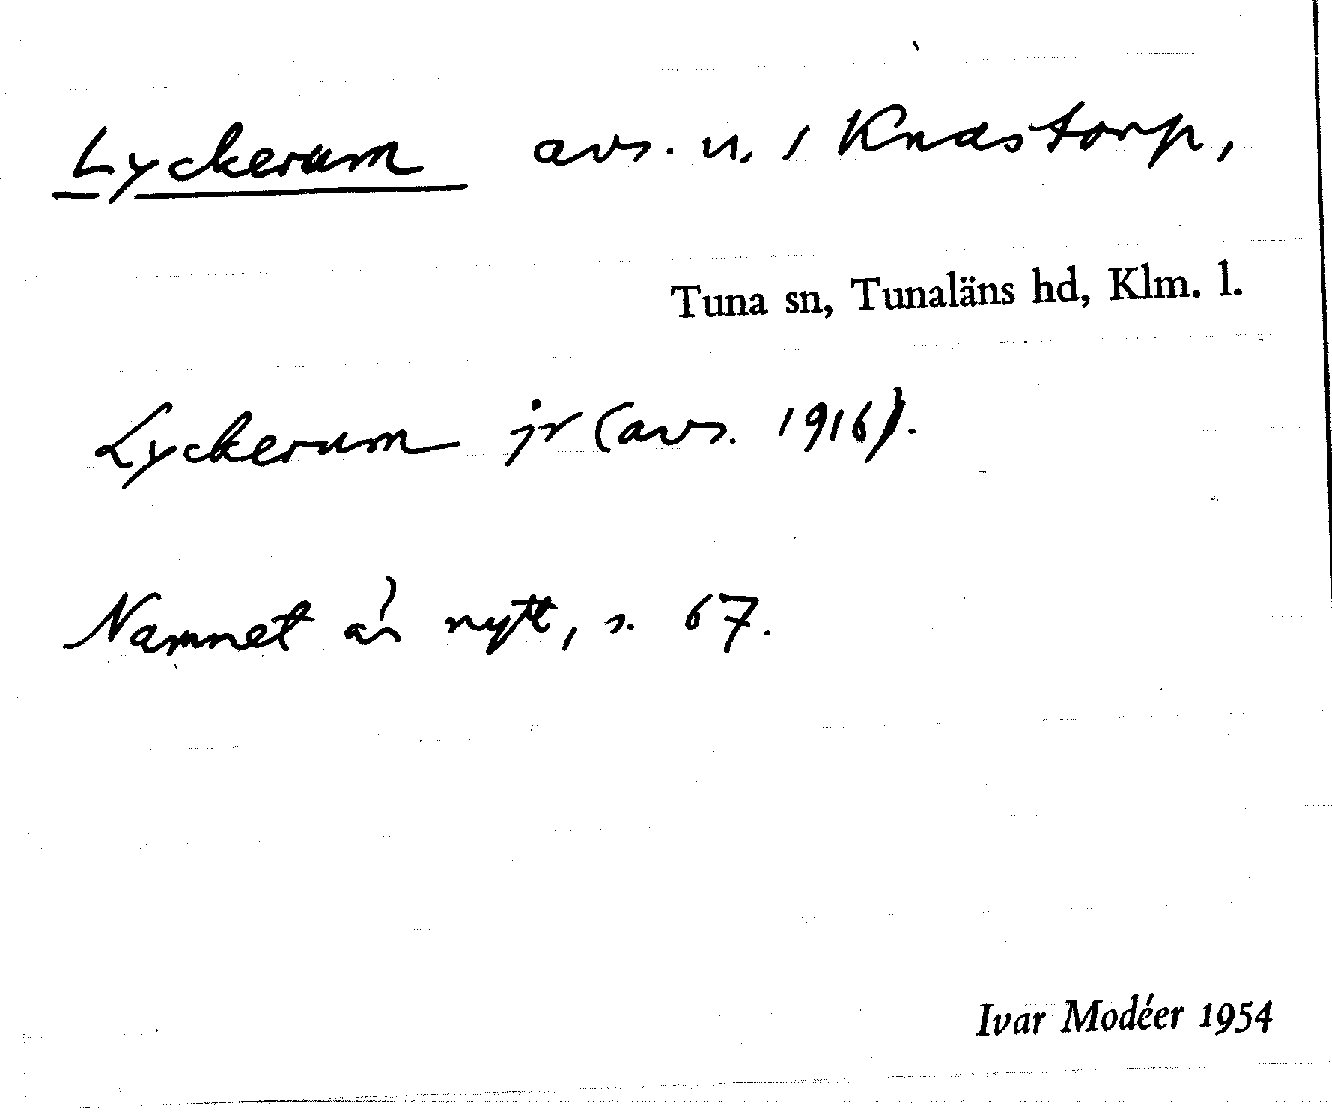 Lyckerum avs. u. / Knastorp,
Tuna sn, Tunaläns hd, Klm. l.
Lyckerum jr (avs. 1916).
Namnet är nytt, s. 67.
Ivar Modéer 1954